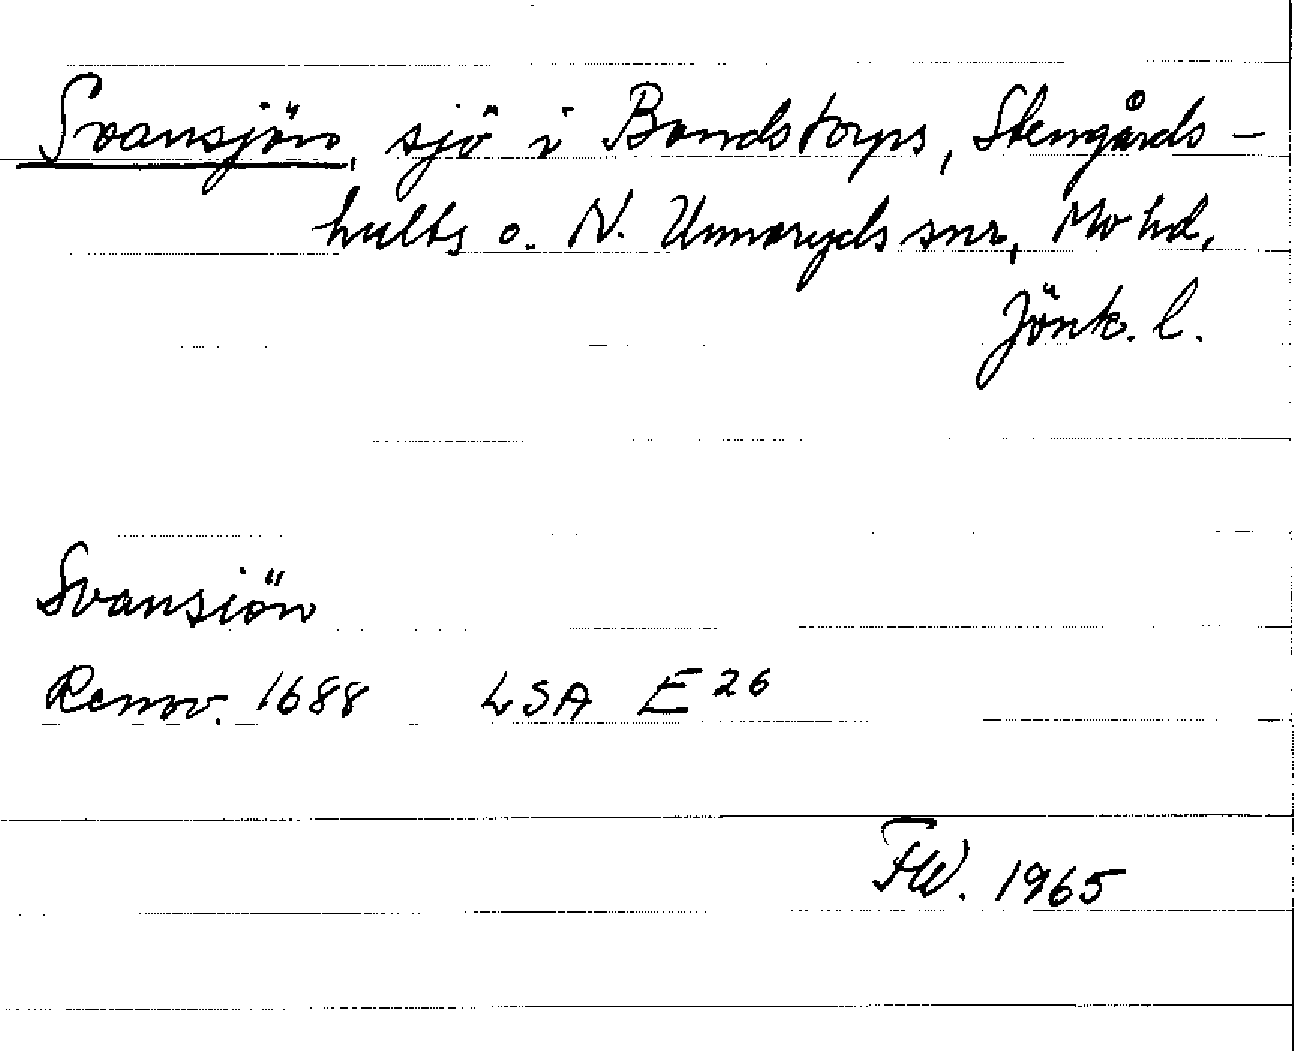 Svansjön, sjö i Bondstorps, Stengårds-
hults o. N. Unnaryds snr, Mo hd,
Jönk. l.
Svansiön
Renov. 1688 LSA E 26
FW. 1965